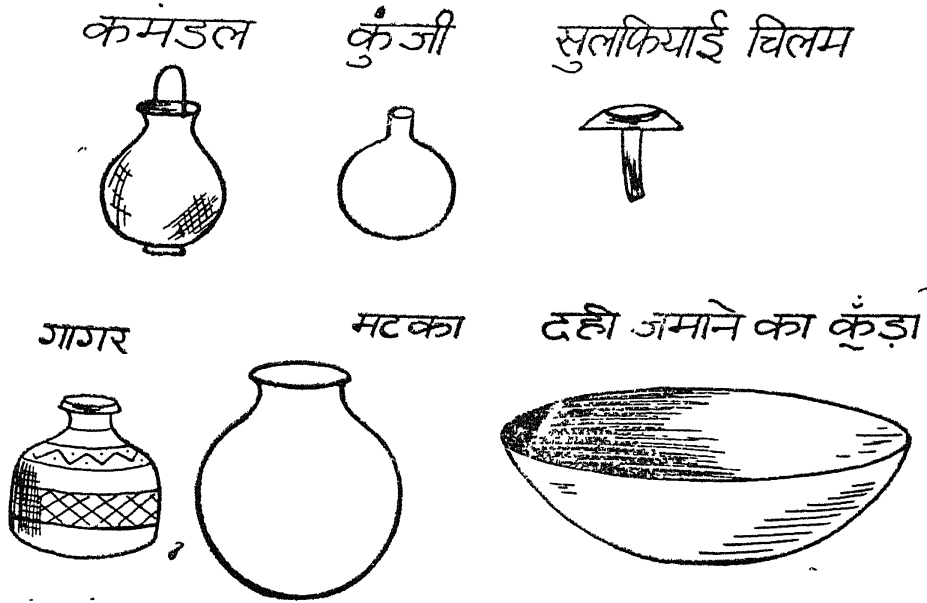 कमंडल कुंजी सुलफियाई चिलम
गागर मटका दही जमाने का कूँड़ा